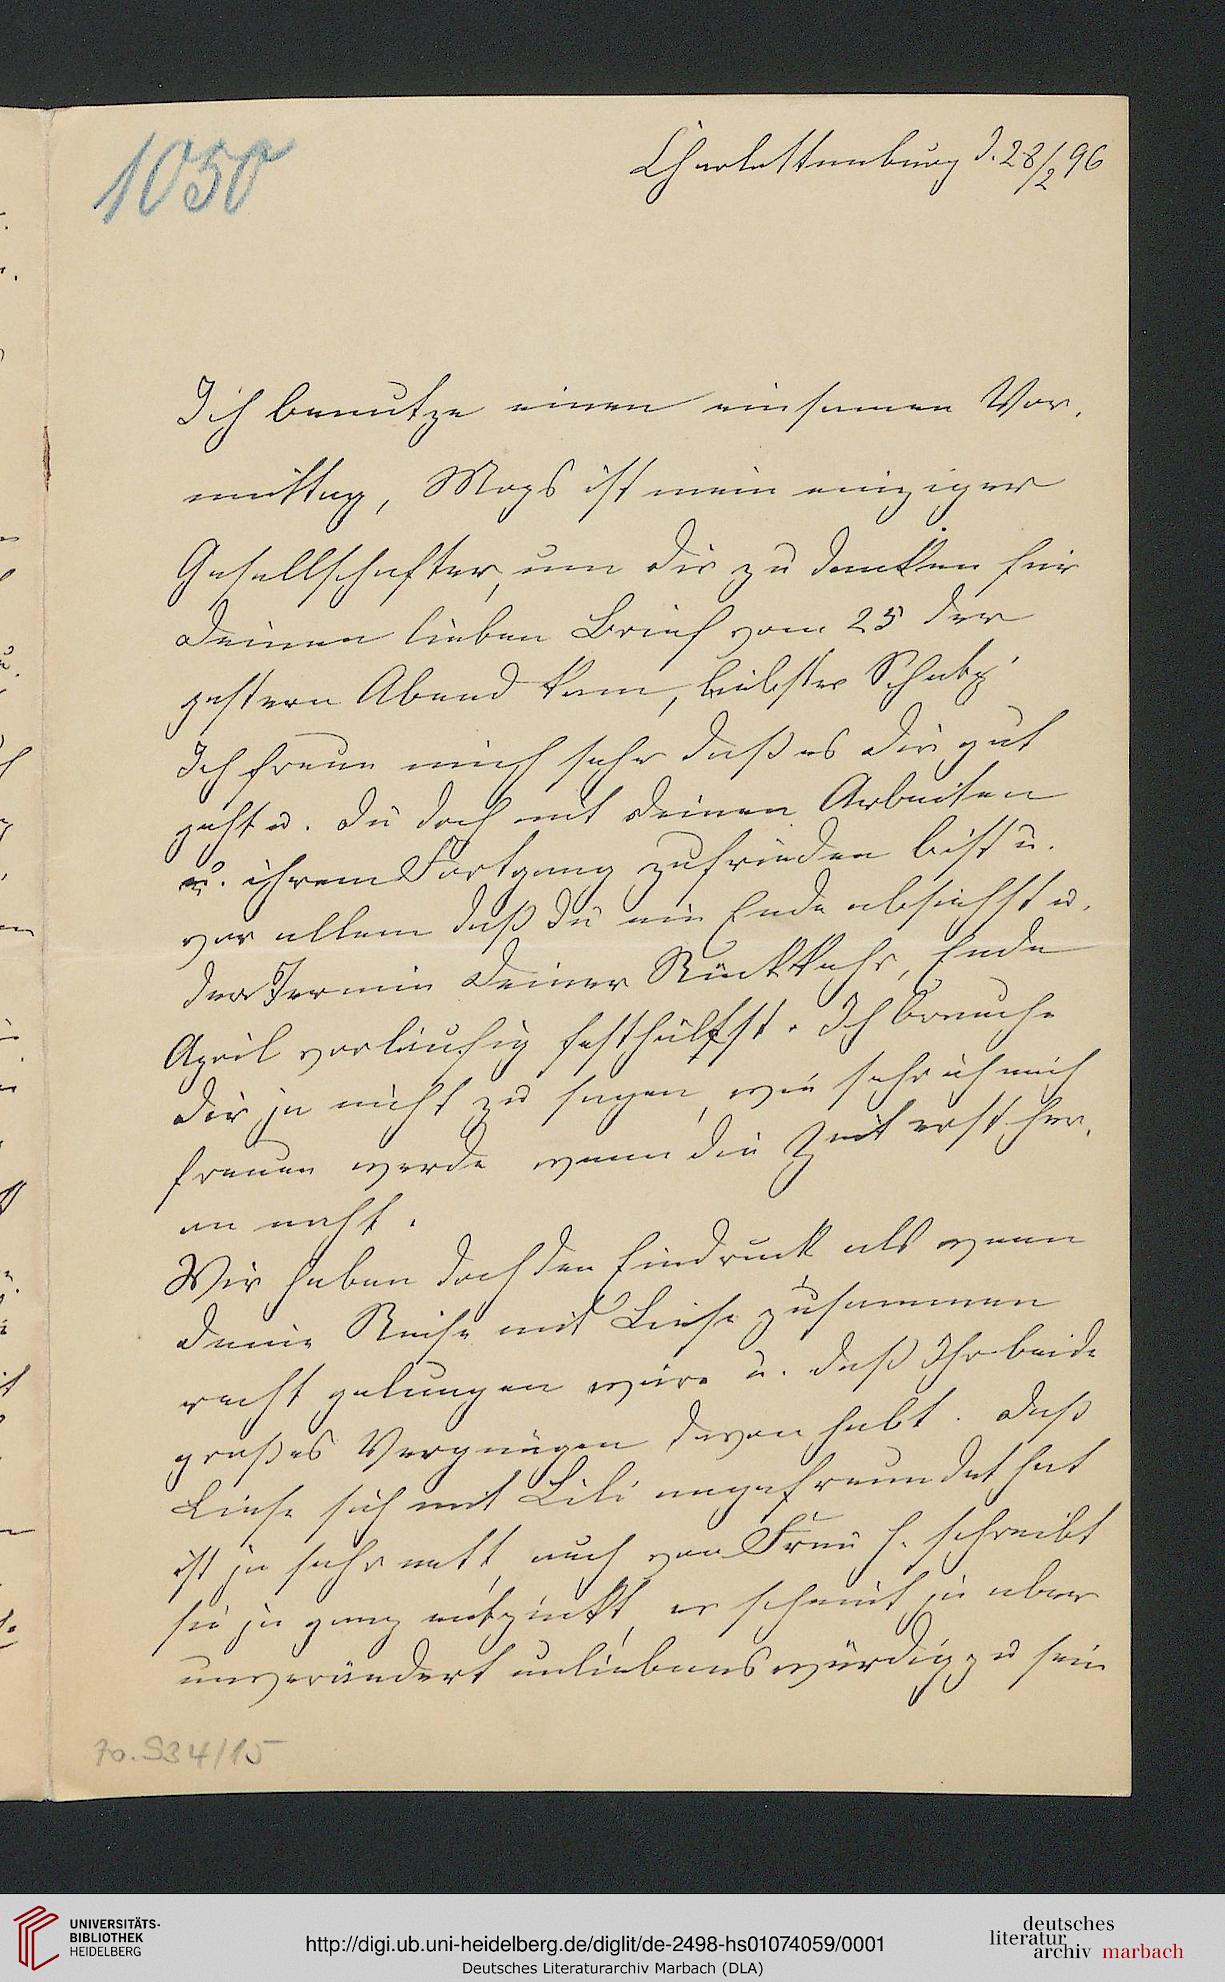 1050
Charlottenburg d. 28/2 96
Ich benutze einen einsamen Vor-
mittag, Mops ist mein einziger
Gesellschafter, um Dir zu danken für
Deinen lieben Brief vom 25 der
gestern Abend kam, liebster Schatz!
Ich freue mich sehr daß es Dir gut
geht u. Du doch mit Deinen Arbeiten
u. ihrem Fortgang zufrieden bist u.
vor allem daß Du ein Ende absiehst u.
den Termin Deiner Rückkehr, Ende
April vorläufig festhältst. Ich brauche
Dir ja nicht zu sagen, wie sehr ich mich
freuen werde wenn die Zeit erst her-
an naht.
Wir haben doch den Eindruck als wenn
Deine Reise mit Liese zusammen
recht gelungen wäre u. daß Ihr beide
großes Vergnügen davon habt. Daß
Liese sich mit Lili angefreundet hat
ist ja sehr nett, auch von Frau H. schreibt
sie ja ganz entzückt, er scheint ja aber
unverändert unliebenswürdig zu sein
70.934/15
UNIVERSITÄTS-
BIBLIOTHEK
HEIDELBERG
http://digi.ub.uni-heidelberg.de/diglit/de-2498-hs01074059/0001
Deutsches Literaturarchiv Marbach (DLA)
deutsches
literatur
archiv marbach